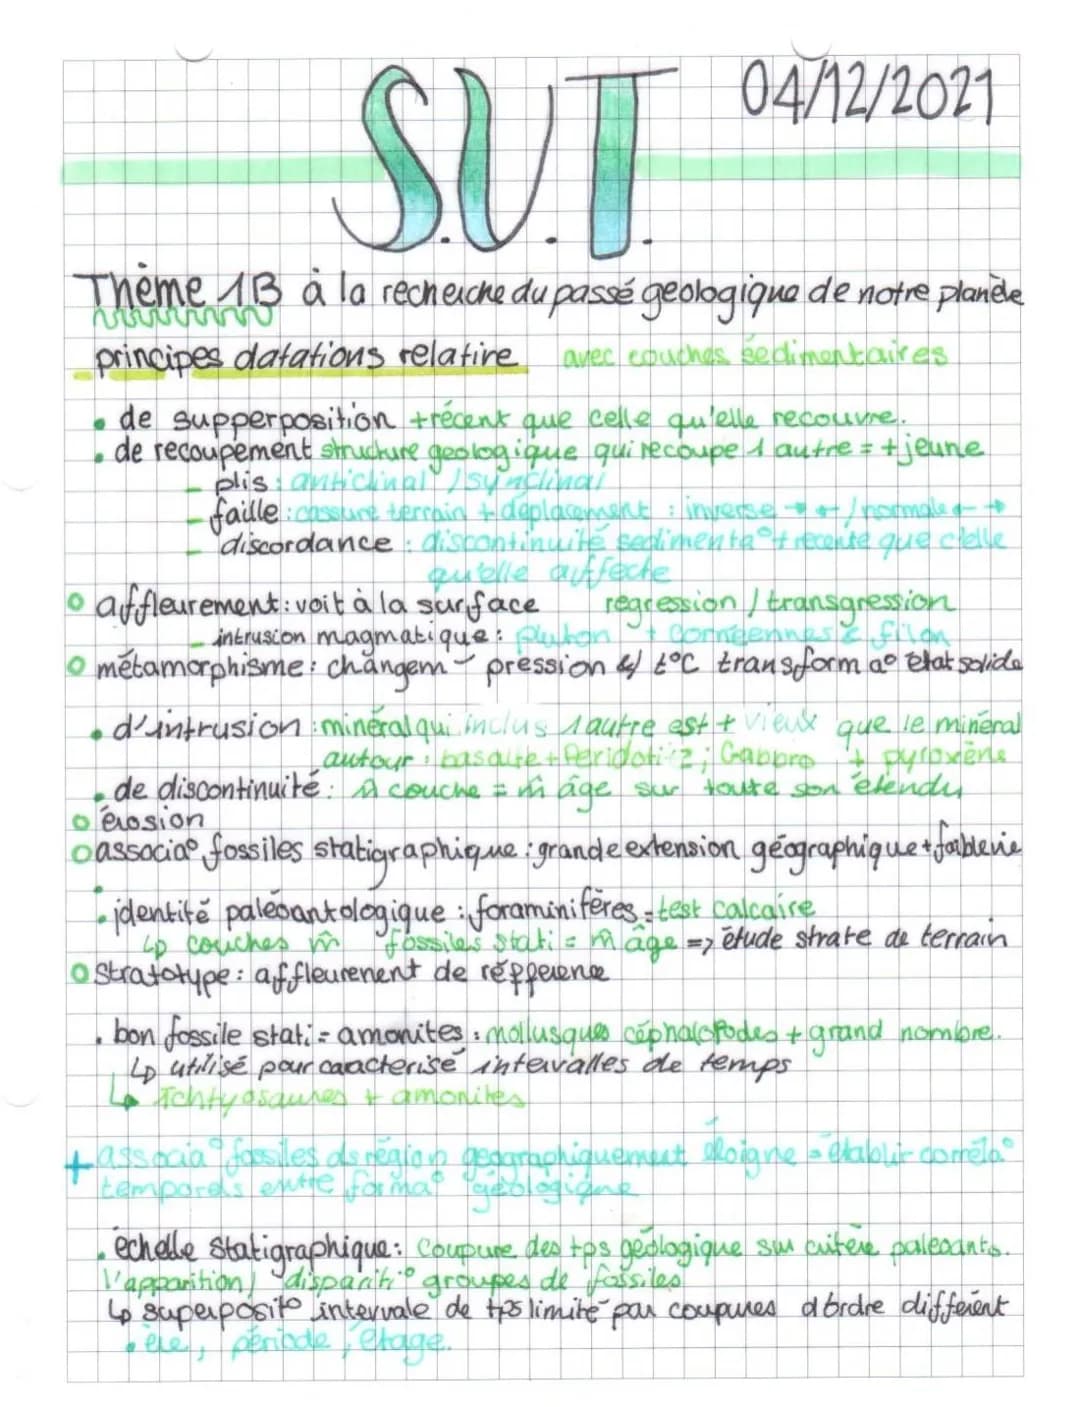 S.U.T. 04/12/2021
Thème 1B à la recherche du passé geologique de notre planète
principes datations relative avec couches sedimentaires
• de supperposition +récent que celle qu'elle recouvre.
• de recoupement structure geologique qui recoupe 1 autre = + jeune
- plis : anticlinal / synclinal
- faille : cassure terrain + déplacement : inverse → ← / normale ← →
- discordance : discontinuité sedimenta° + recente que celle
qu'elle affecte
o affleurement : voit à la surface regression / transgression
- intrusion magmatique : pluton + cornéennes & filon
o métamorphisme : changem - pression &/ t°C transforma° état solide
• d'intrusion : minéral qui inclus 1 autre est + vieux que le minéral
autour : basalte + Peridoti ; Gabbro + pyroxène
• de discontinuité : 1 couche = m̂ âge sur toute son étendu
o érosion
o associa° fossiles statigraphique : grande extension géographique + faible vie
• identité paléoantologique : foraminifères = test calcaire
↳ couches m̂ fossiles stati = m̂ âge => étude strate de terrain
o Stratotype : affleurement de réfference
• bon fossile stati = amonites : mollusques céphalopodes + grand nombre.
↳ utilisé pour caracterisé intervalles de temps
↳ Ichtyosaures + amonites
+ associa° fossiles ds région geographiquement éloigne = établir corréla°
temporels entre forma° géologique
• échelle statigraphique : coupure des tps géologique sur critère paleoanto.
l'apparition / dispariti° groupes de fossiles
↳ superposit° intervale de tps limité par coupures d'ordre différent
• ère, période, étage.